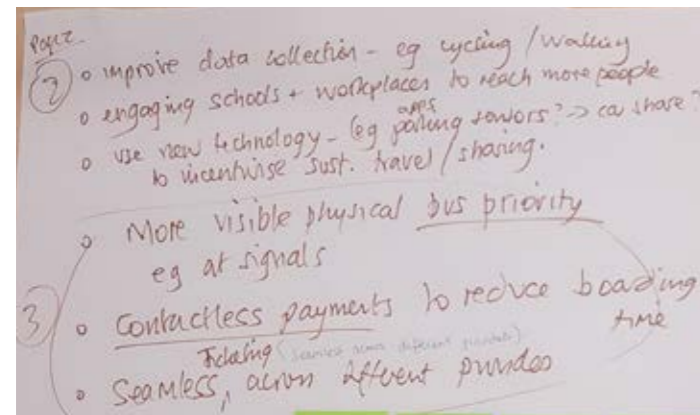 Page 2.
② o improve data collection - eg cycling / walking
o engaging schools + workplaces to reach more people
apps
o use new technology - (eg parking sensors? -> car share?
to incentivise sust. travel / sharing.
o More visible physical bus priority
eg at signals
③ o Contactless payments to reduce boarding
time
Ticketing (seamless across different providers)
o Seamless, across different provides